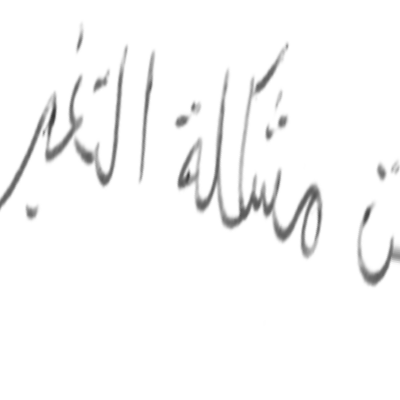 مشكلة التغير